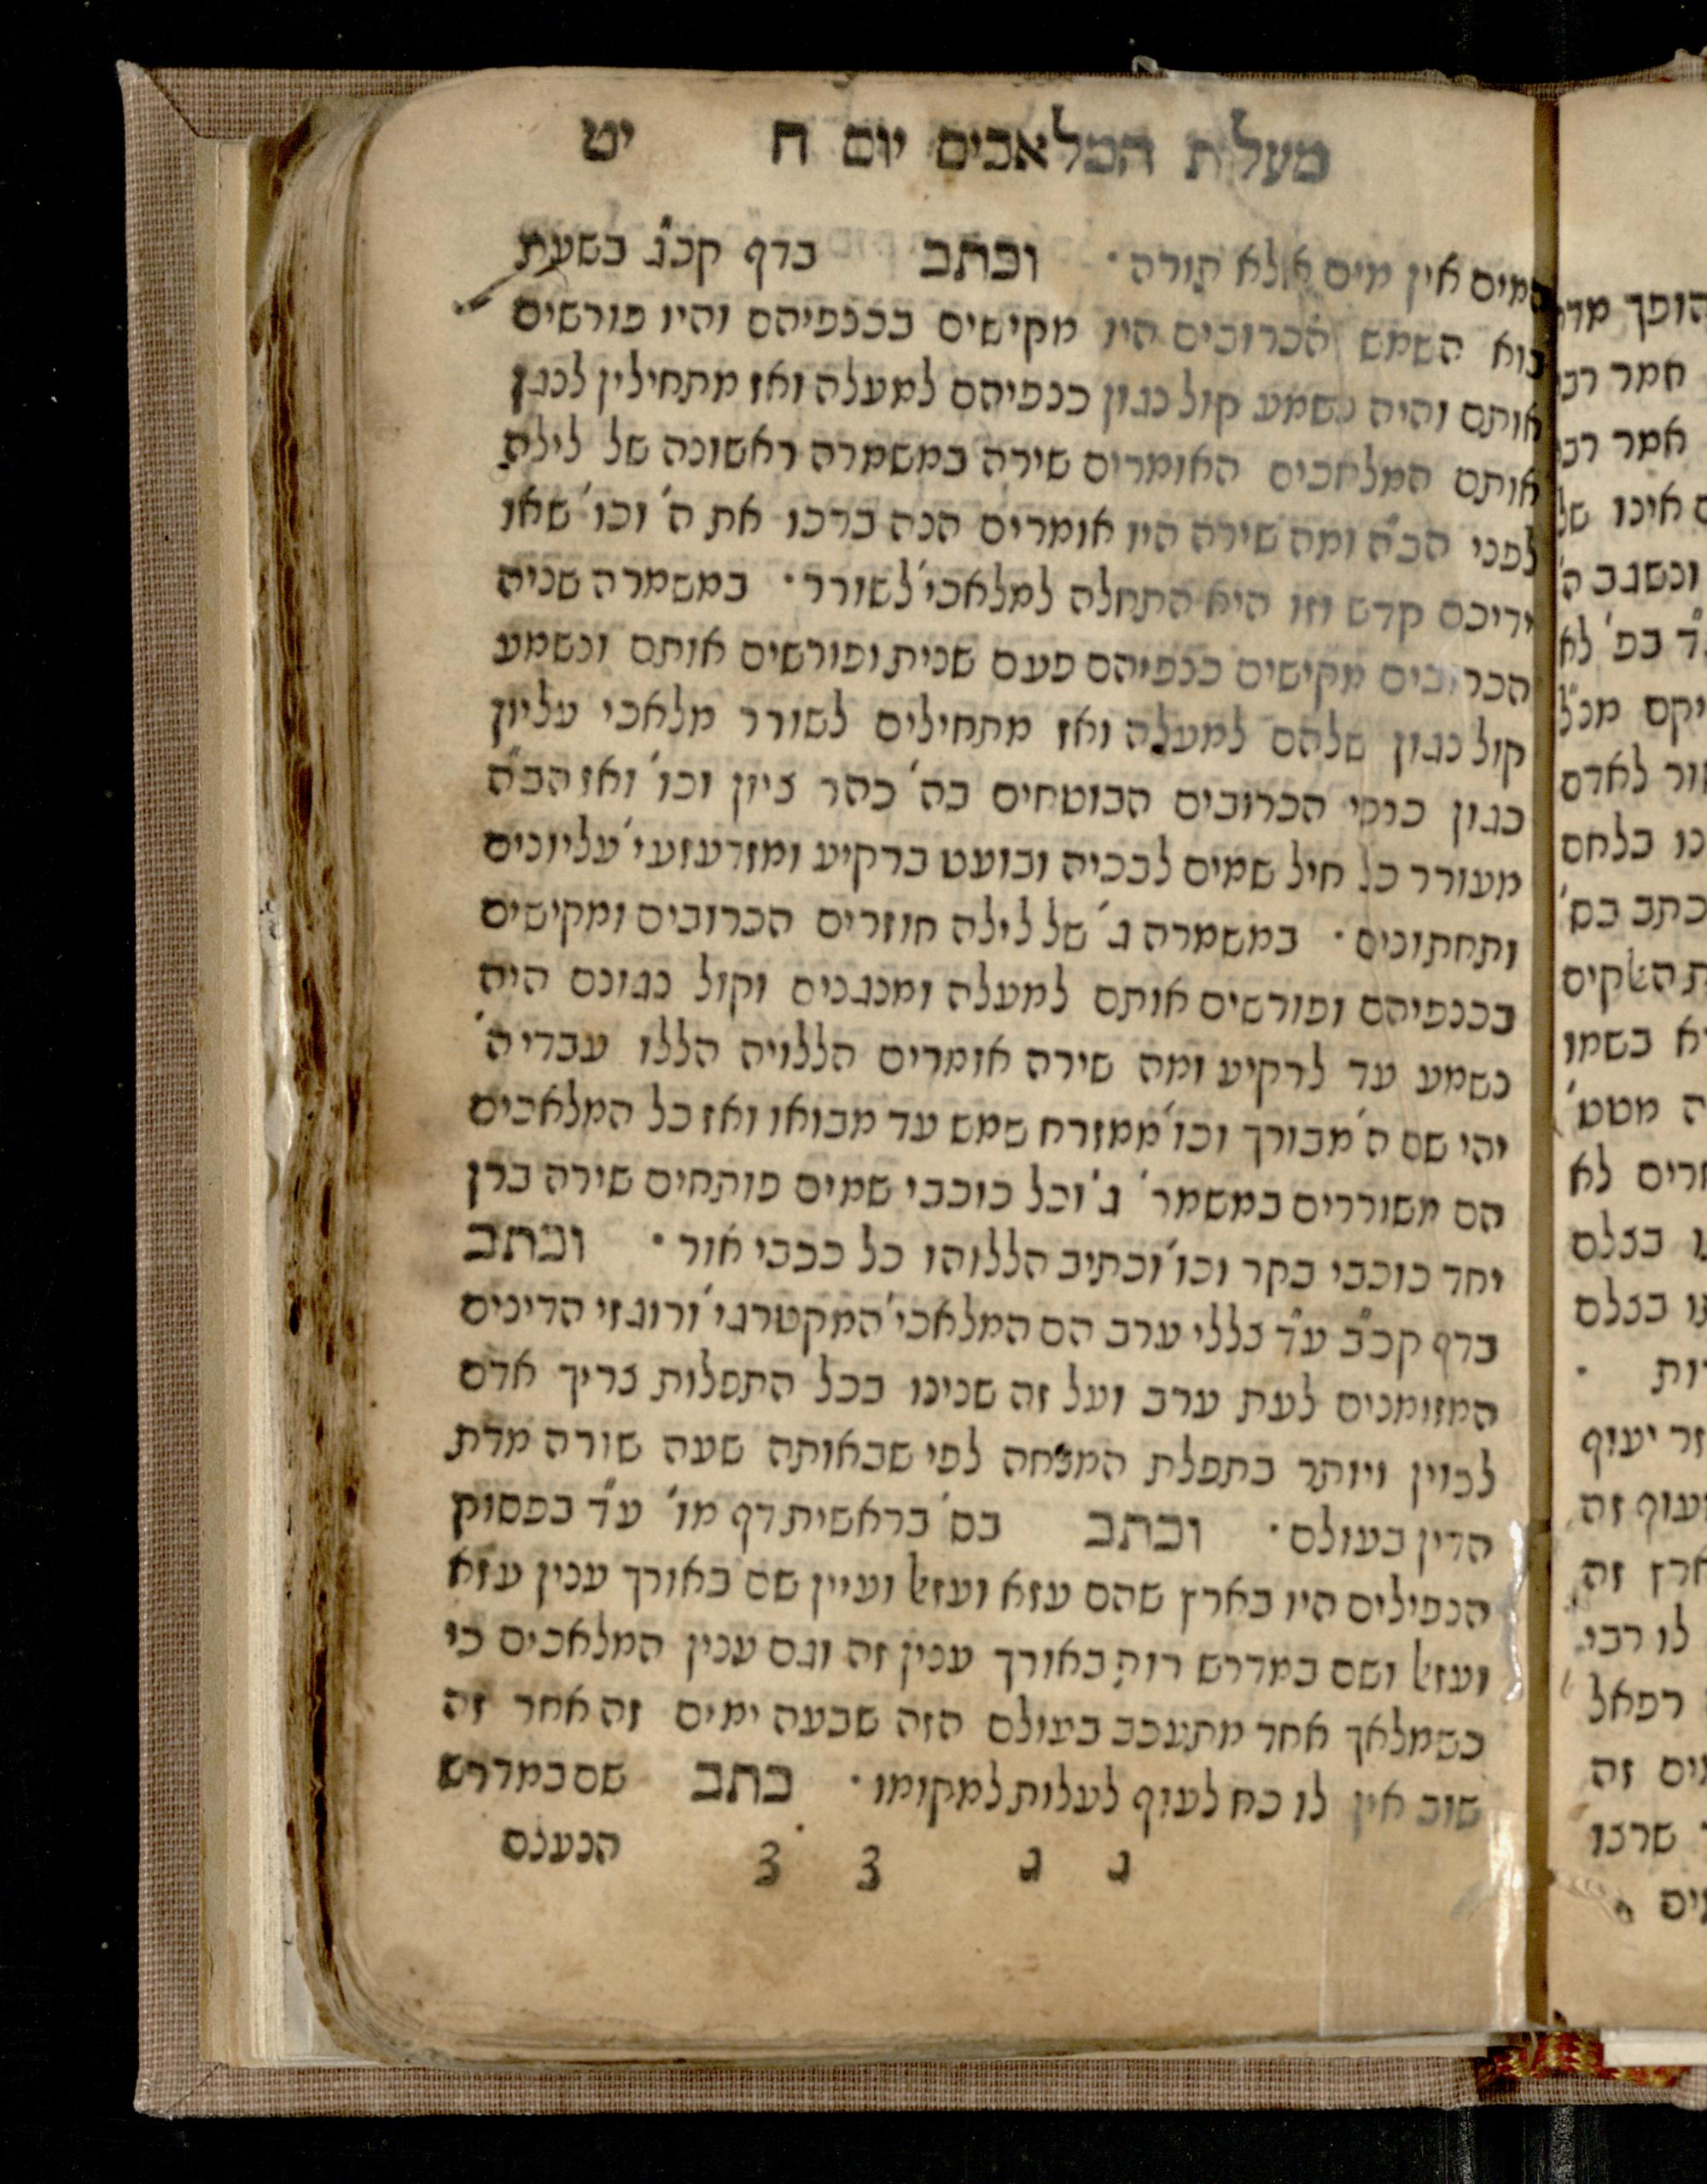 מעלת המלאכים יום ח יט
המים אין מים אלא תורה · וכתב בדף קכ"ג בשעת
בוא השמש הכרובים היו מקישים בכנפיהם והיו פורשים
אותם והיה נשמע קול נגון כנפיהם למעלה ואז מתחילין לנגן
אותם המלאכים האומרים שירה במשמרה ראשונה של לילה
לפני הב"ה ומה שירה היו אומרים הנה ברכו את ה' וכו' שאו
ידיכם קדש וזו היא התחלה למלאכי' לשורר · במשמרה שניה
הכרובים מקישים כנפיהם פעם שנית ופורשים אותם ונשמע
קול נגון שלהם למעלה ואז מתחילים לשורר מלאכי עליון
נגון כנפי הכרובים הבוטחים בה' כהר ציון וכו' ואז הב"ה
מעורר כל חיל שמים לבכיה ובועט ברקיע ומזדעזעי' עליונים
ותחתונים · במשמרה ג' של לילה חוזרים הכרובים ומקישים
בכנפיהם ופורשים אותם למעלה ומנגנים וקול נגונם היה
נשמע עד לרקיע ומה שירה אומרים הללויה הללו עבדי ה'
יהי שם ה' מבורך וכו' ממזרח שמש עד מבואו ואז כל המלאכים
הם משוררים במשמר' ג' וכל כוכבי שמים פותחים שירה ברן
יחד כוכבי בקר וכו' וכתיב הללוהו כל ככבי אור · וכתב
בדף קכ"ב ע"ד צללי ערב הם המלאכי' המקטרגי' ורוגזי הדינים
המזומנים לעת ערב ועל זה שנינו בכל התפלות צריך אדם
לכוין ויותר בתפלת המצחה לפי שבאותה שעה שורה מדת
הדין בעולם · וכתב בס' בראשית דף מו' ע"ד בפסוק
הנפילים היו בארץ שהם עזא ועזאל ועיין שם באורך ענין עזא
ועזאל ושם במדרש רות באורך ענין זה וגם ענין המלאכים כי
כשמלאך אחד מתעכב בעולם הזה שבעה ימים זה אחר זה
שוב אין לו כח לעוף לעלות למקומו · כתב שם במדרש
ג ג 3 3 הנעלם